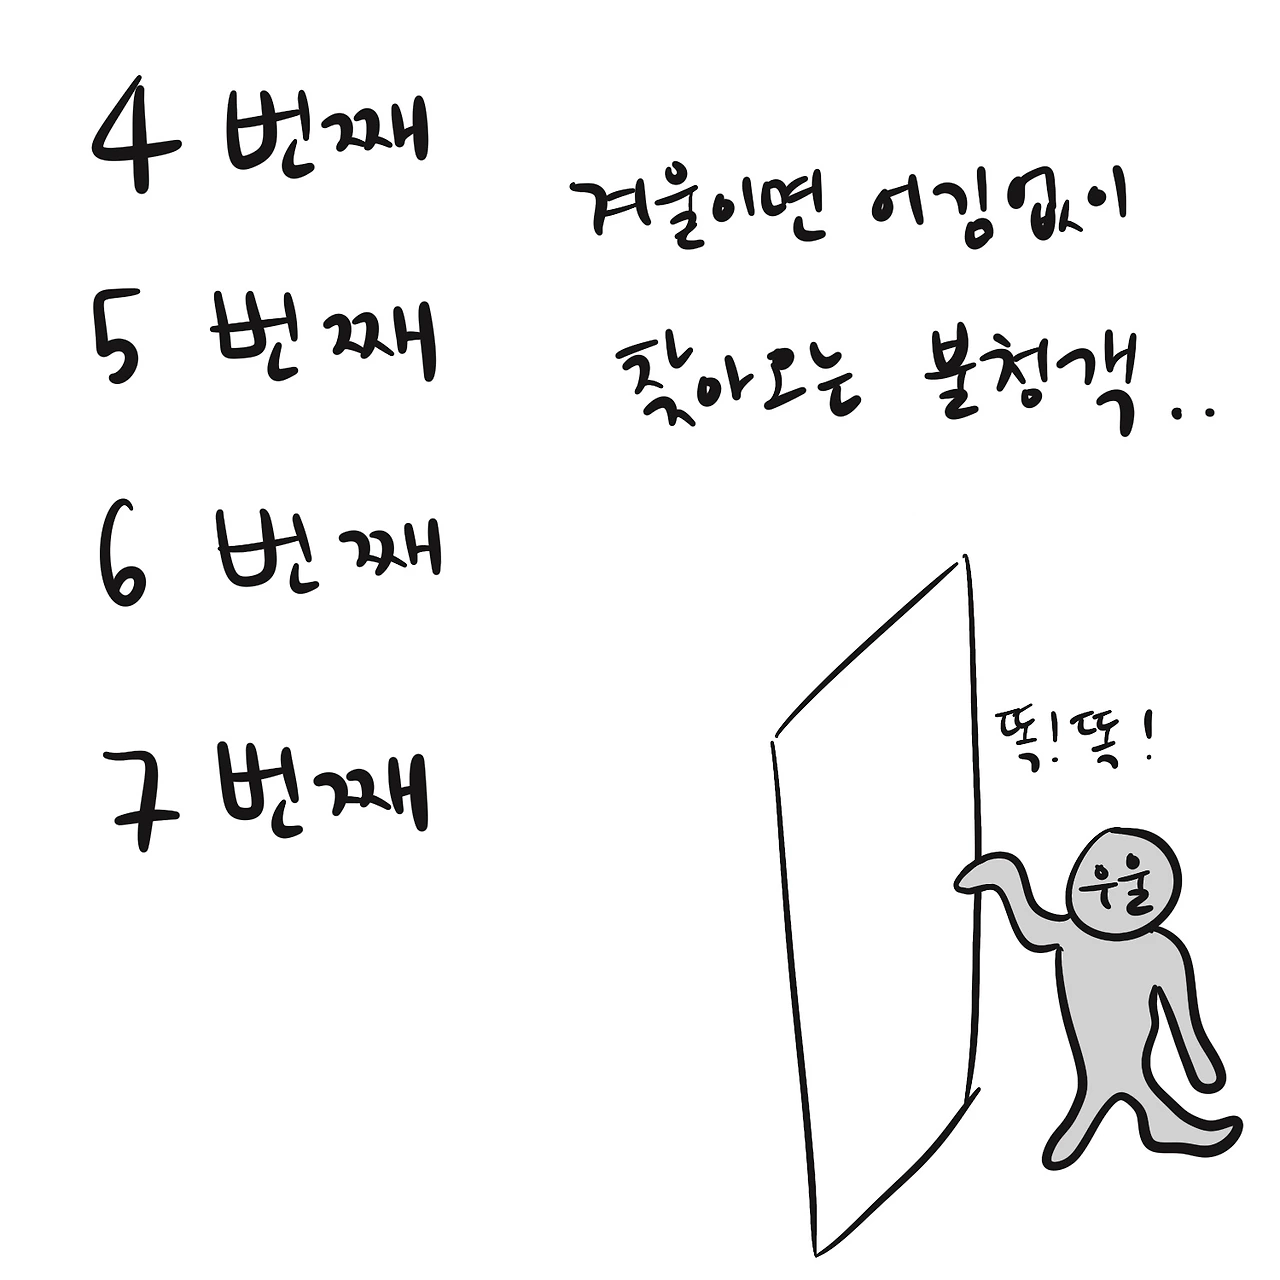 4 번째
5 번째
6 번째
7 번째
겨울이면 어김없이
찾아오는 불청객..
똑! 똑!
우울